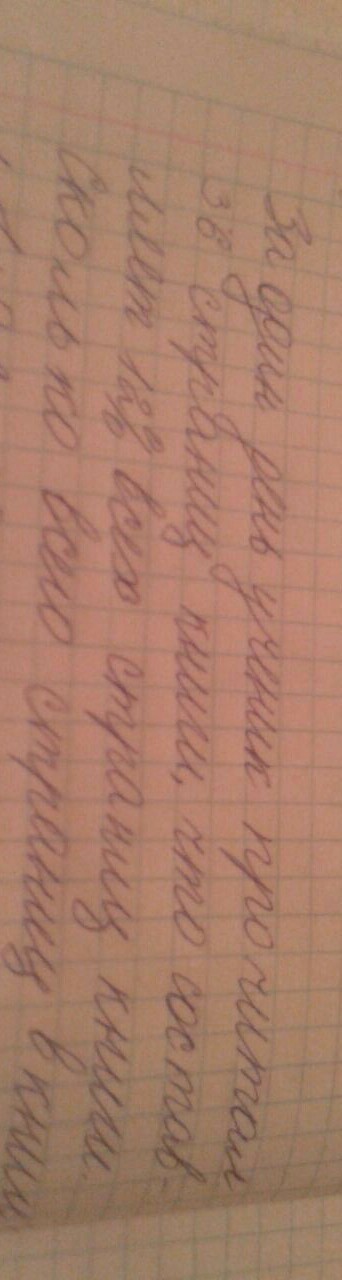 За один день ученик прочитал
36 страниц книги, что состав-
ляет 12% всех страниц книги.
Сколько всего страниц в книг